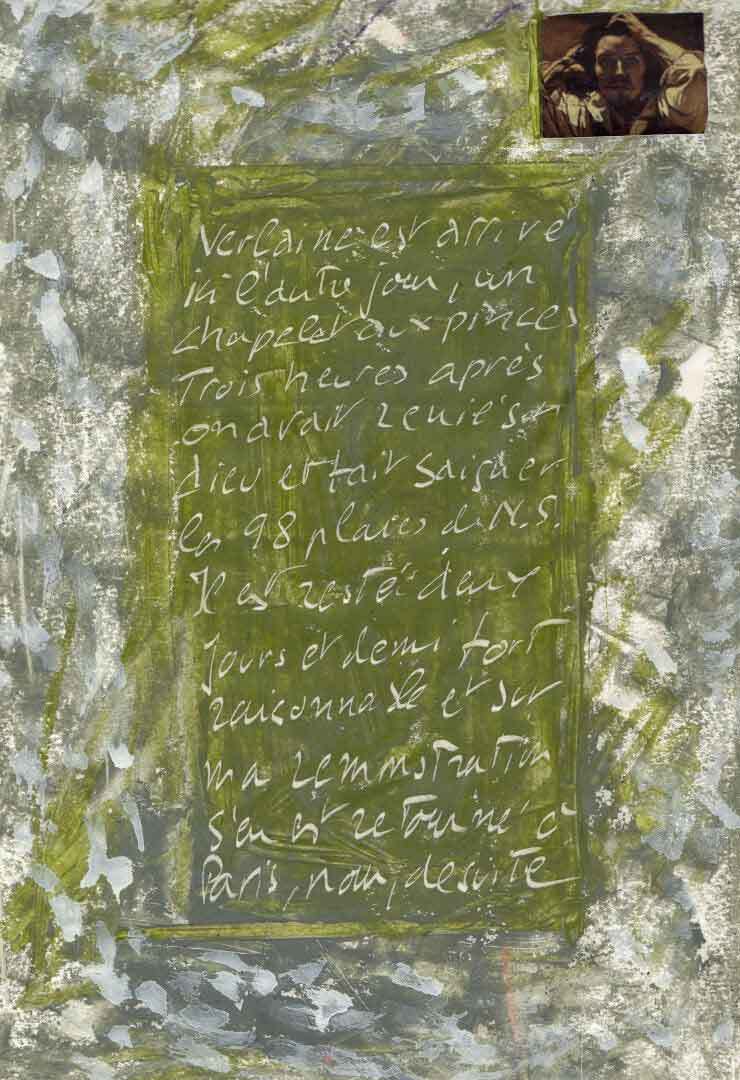 Verlaine est arrivé
ici l'autre jour, un
chapelet aux pinces
Trois heures après
on avait renié son
dieu et fait saigner
les 98 plaies de N.S.
Il est resté deux
jours et demi fort
raisonnable et sur
ma remonstration
s'en est retourné à
Paris, pour, de suite